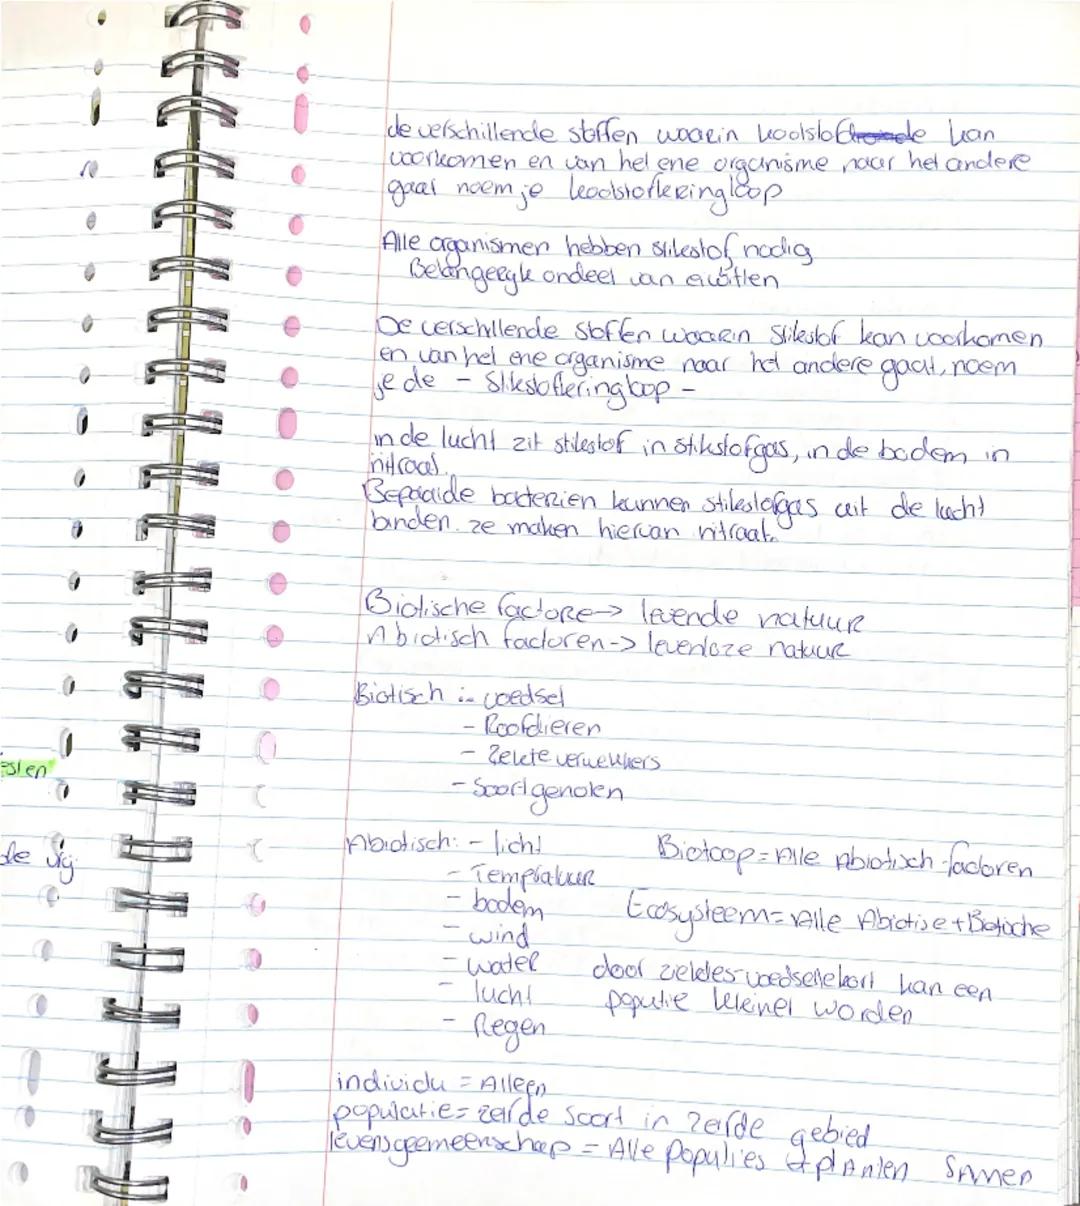 de verschillende stoffen waarin koolstof kan
voorkomen en van het ene organisme naar het andere
gaat noem je koolstofkringloop
Alle organismen hebben stikstof nodig
Belangeryk ondeel van eiwitten
De verschillende stoffen waarin stikstof kan voorkomen
en van het ene organisme naar het andere gaat, noem
je de - Stikstofkringloop -
in de lucht zit stikstof in stikstofgas, in de bodem in
nitraat.
Bepaalde bacterien kunnen stikstofgas uit de lucht
binden. ze maken hiervan nitraat.
Biotische factore -> levende natuur
Abiotisch factoren -> levenloze natuur
Biotisch :- voedsel
- Roofdieren
- Ziekteverwekkers
- Soortgenoten
esten
de
Abiotisch: - licht
- Tempratuur
- bodem
- wind
- water
- lucht
- Regen
Biotoop = Alle Abiotisch factoren
Ecosysteem = Alle Abiotise + Biotoche
door ziektes-voedseltekort kan een
populie kleiner worden
individu = Alleen
populatie = zelfde soort in zelfde gebied
levensgemeenschap = Alle populies + planten samen